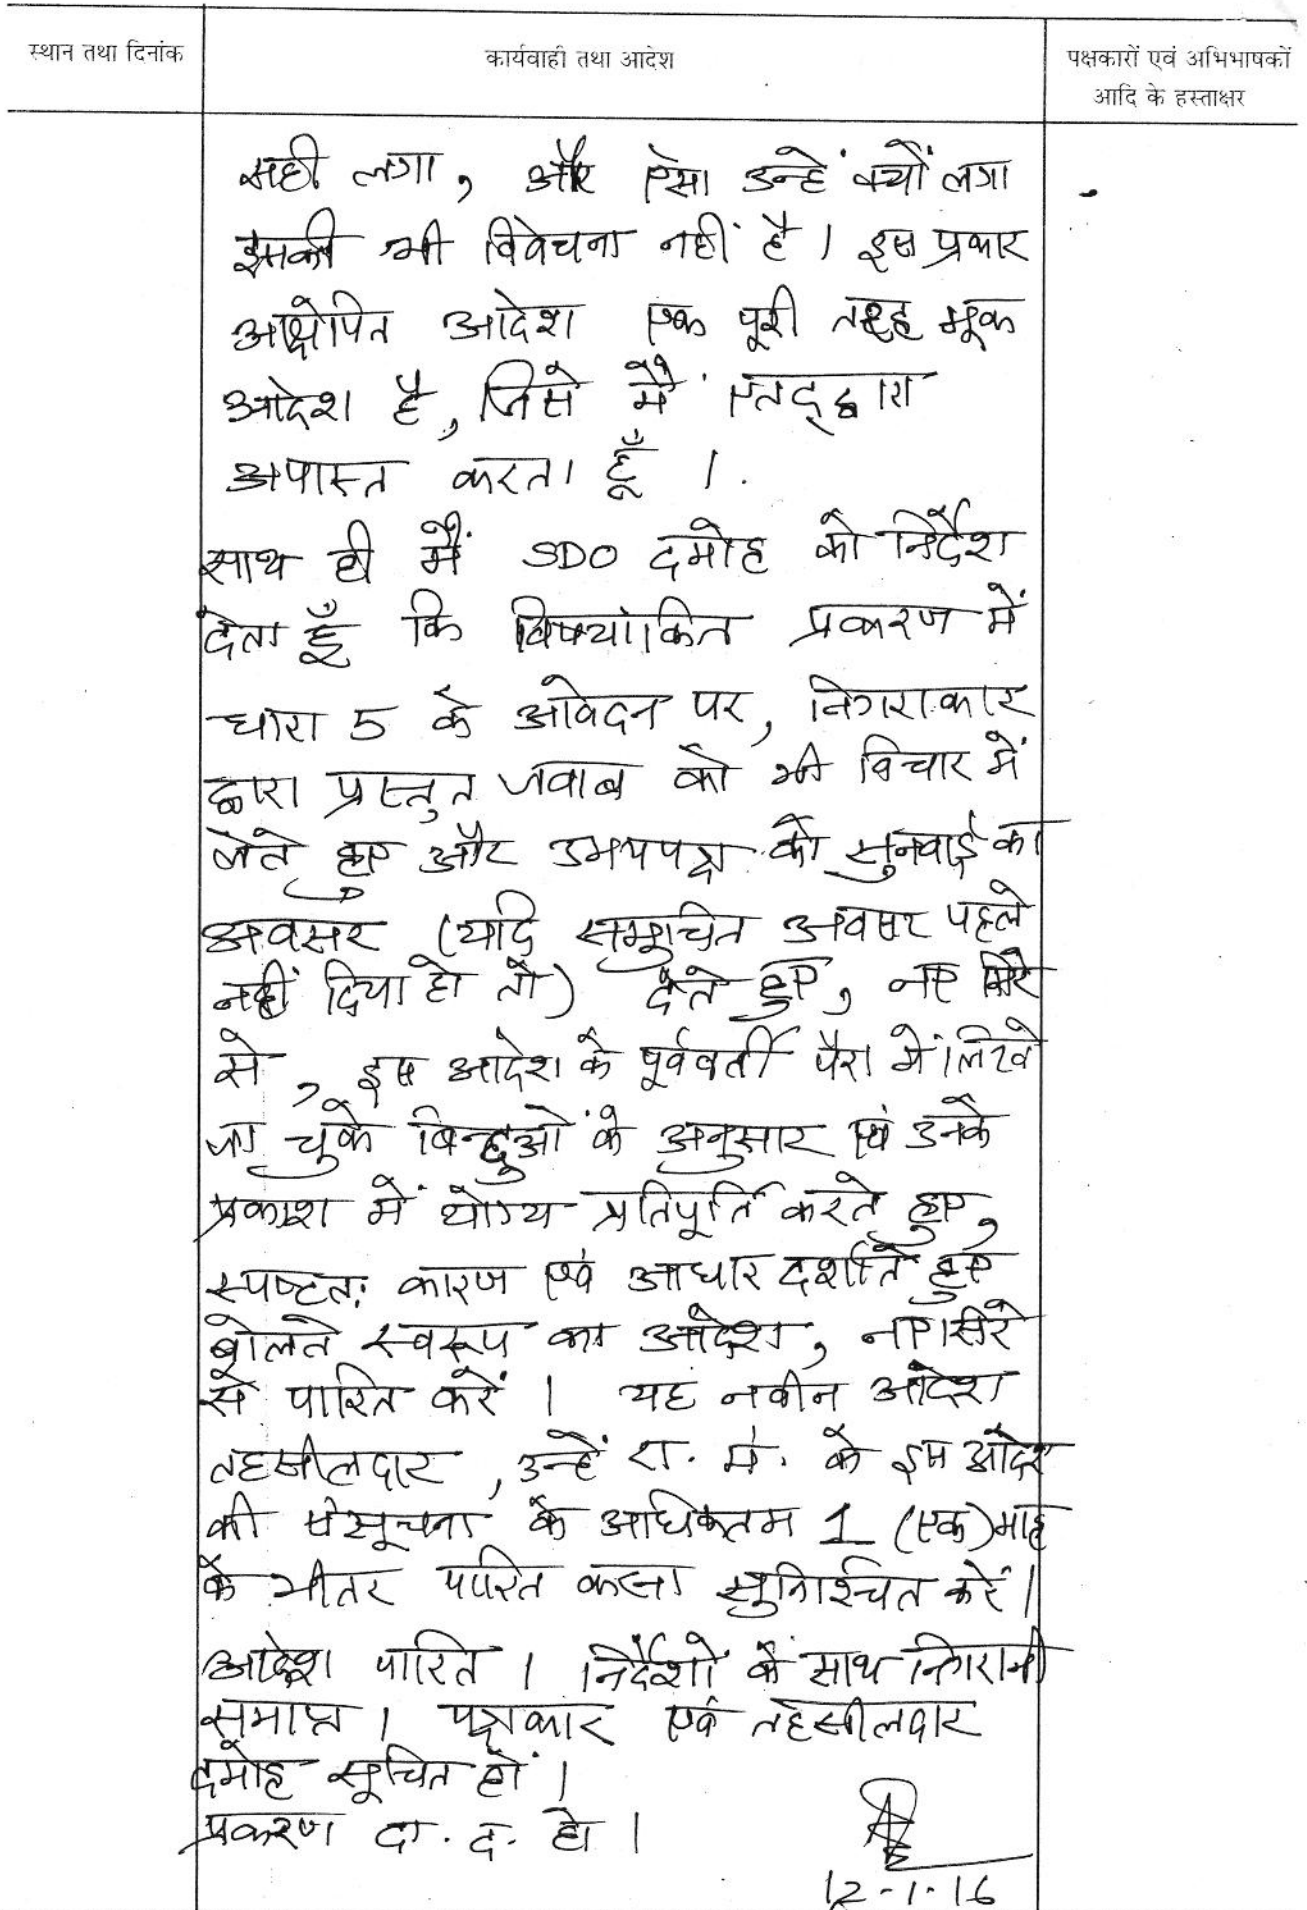 स्थान तथा दिनांक
कार्यवाही तथा आदेश
पक्षकारों एवं अभिभाषकों
आदि के हस्ताक्षर
सही लगा, और ऐसा उन्हें क्यों लगा
इसकी भी विवेचना नहीं है। इस प्रकार
आक्षेपित आदेश एक पूरी तरह मूक
आदेश है, जिसे मैं एतद्द्वारा
अपास्त करता हूँ ।
साथ ही मैं SDO दमोह को निर्देश
देता हूँ कि विषयांकित प्रकरण में
धारा 5 के आवेदन पर, निगराकार
द्वारा प्रस्तुत जवाब को भी विचार में
लेते हुए और उभयपक्ष को सुनवाई का
अवसर (यदि समुचित अवसर पहले
नहीं दिया हो तो) देते हुए, नए सिरे
से, इस आदेश के पूर्ववर्ती पैरा में लिखे
जा चुके बिन्दुओं के अनुसार एवं उनके
प्रकाश में योग्य प्रतिपूर्ति करते हुए,
स्पष्टतः कारण एवं आधार दर्शाते हुए
बोलते स्वरूप का आदेश, नए सिरे
से पारित करें । यह नवीन आदेश
तहसीलदार, उन्हें रा. मं. के इस आदेश
की संसूचना के अधिकतम 1 (एक) माह
के भीतर पारित करना सुनिश्चित करें।
आदेश पारित । निर्देशों के साथ निगरानी
समाप्त । पक्षकार एवं तहसीलदार
दमोह सूचित हों ।
प्रकरण दा. द. हो ।
12-1-16